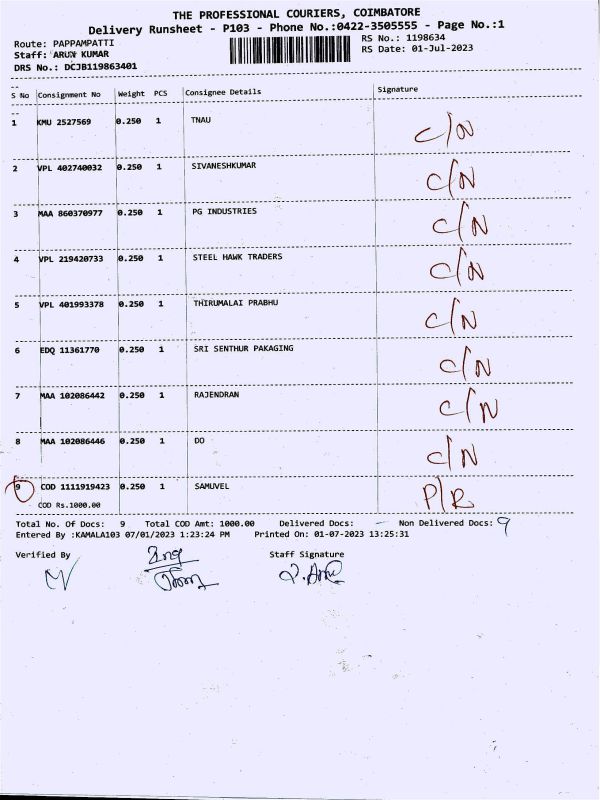 THE PROFESSIONAL COURIERS, COIMBATORE
Delivery Runsheet - P103 - Phone No.:0422-3505555 - Page No.:1
Route: PAPPAMPATTI
RS No.: 1198634
Staff: ARUN KUMAR
RS Date: 01-Jul-2023
DRS No.: DCJB119863401
--
S No Consignment No Weight PCS Consignee Details Signature
--
1 KMU 2527569 0.250 1 TNAU C/N
2 VPL 402740032 0.250 1 SIVANESHKUMAR C/N
3 MAA 860370977 0.250 1 PG INDUSTRIES C/N
4 VPL 219420733 0.250 1 STEEL HAWK TRADERS C/N
5 VPL 401993378 0.250 1 THIRUMALAI PRABHU C/N
6 EDQ 11361770 0.250 1 SRI SENTHUR PAKAGING C/N
7 MAA 102086442 0.250 1 RAJENDRAN C/N
8 MAA 102086446 0.250 1 DO C/N
9 COD 1111919423 0.250 1 SAMUVEL P/R
COD Rs.1000.00
Total No. Of Docs: 9 Total COD Amt: 1000.00 Delivered Docs: - Non Delivered Docs: 9
Entered By :KAMALA103 07/01/2023 1:23:24 PM Printed On: 01-07-2023 13:25:31
Verified By Staff Signature